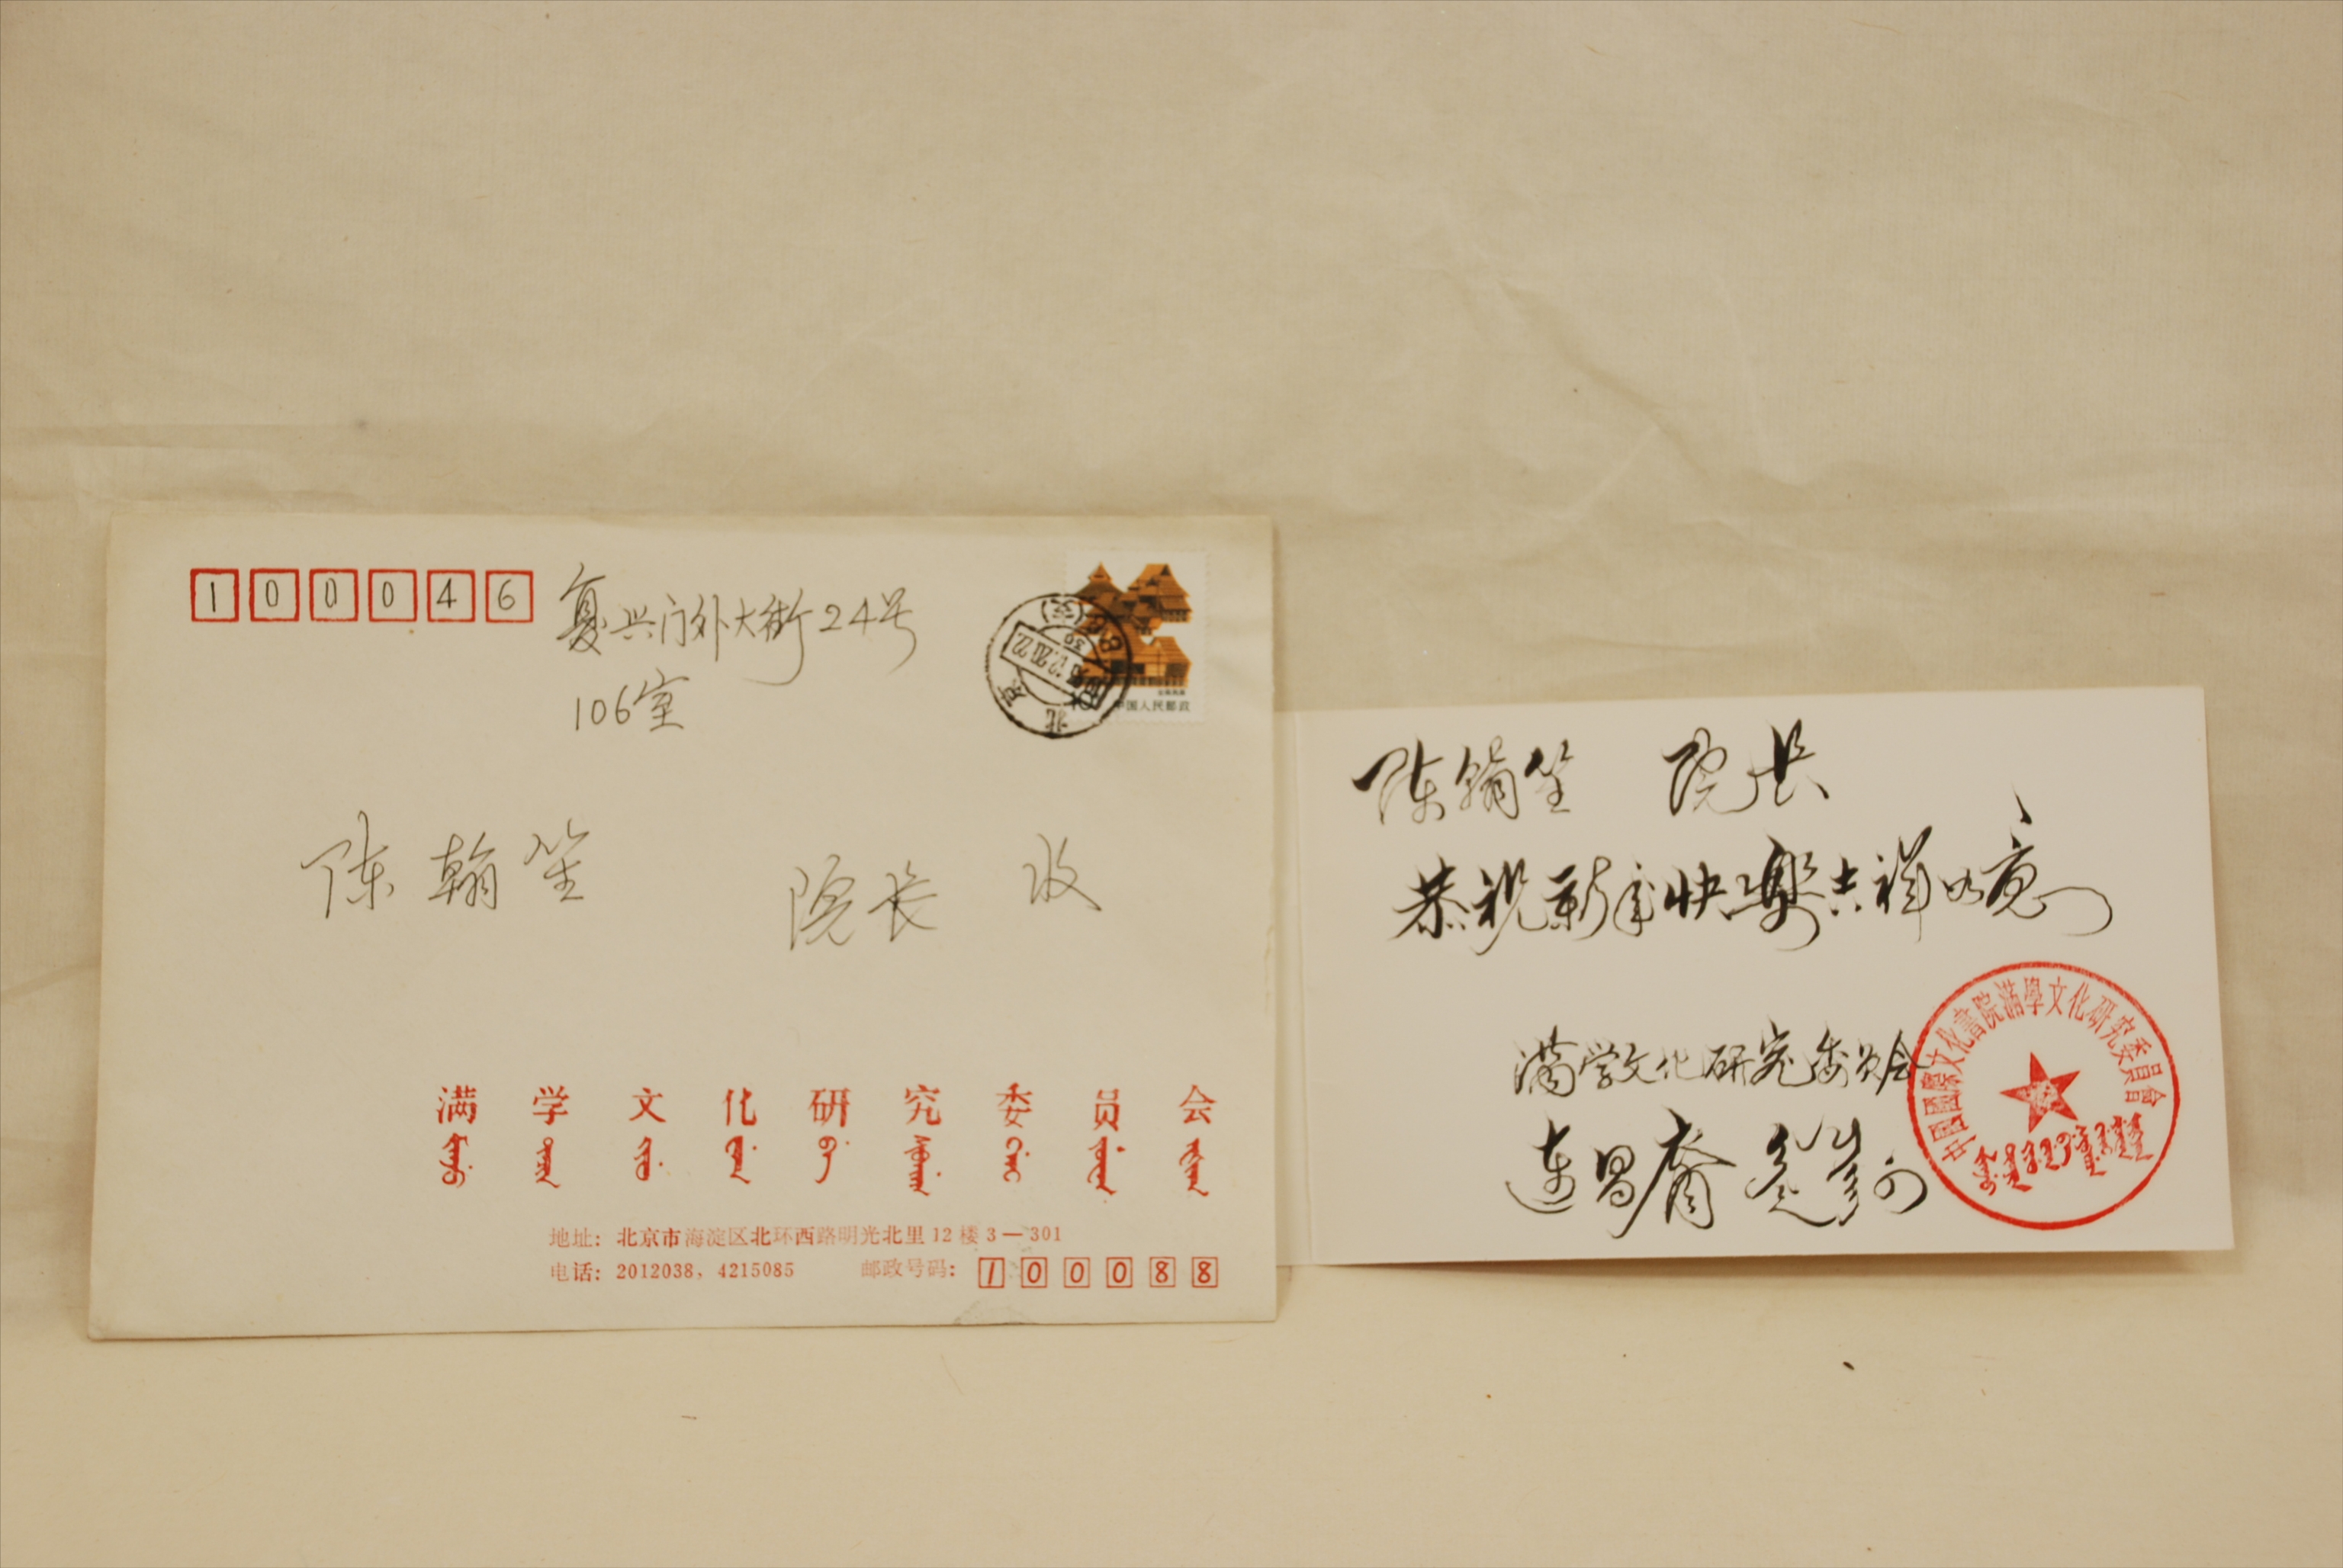 100046
复兴门外大街24号
106室
中国人民邮政
北京
陈翰笙 院长 收
满学文化研究委员会
地址：北京市海淀区北环西路明光北里12楼3—301
电话：2012038，4215085 邮政号码：100088
陈翰笙 院长
恭祝新年快樂吉祥如意
满学文化研究委员会
连昌裔
中國國際文化書院滿學文化研究委員會